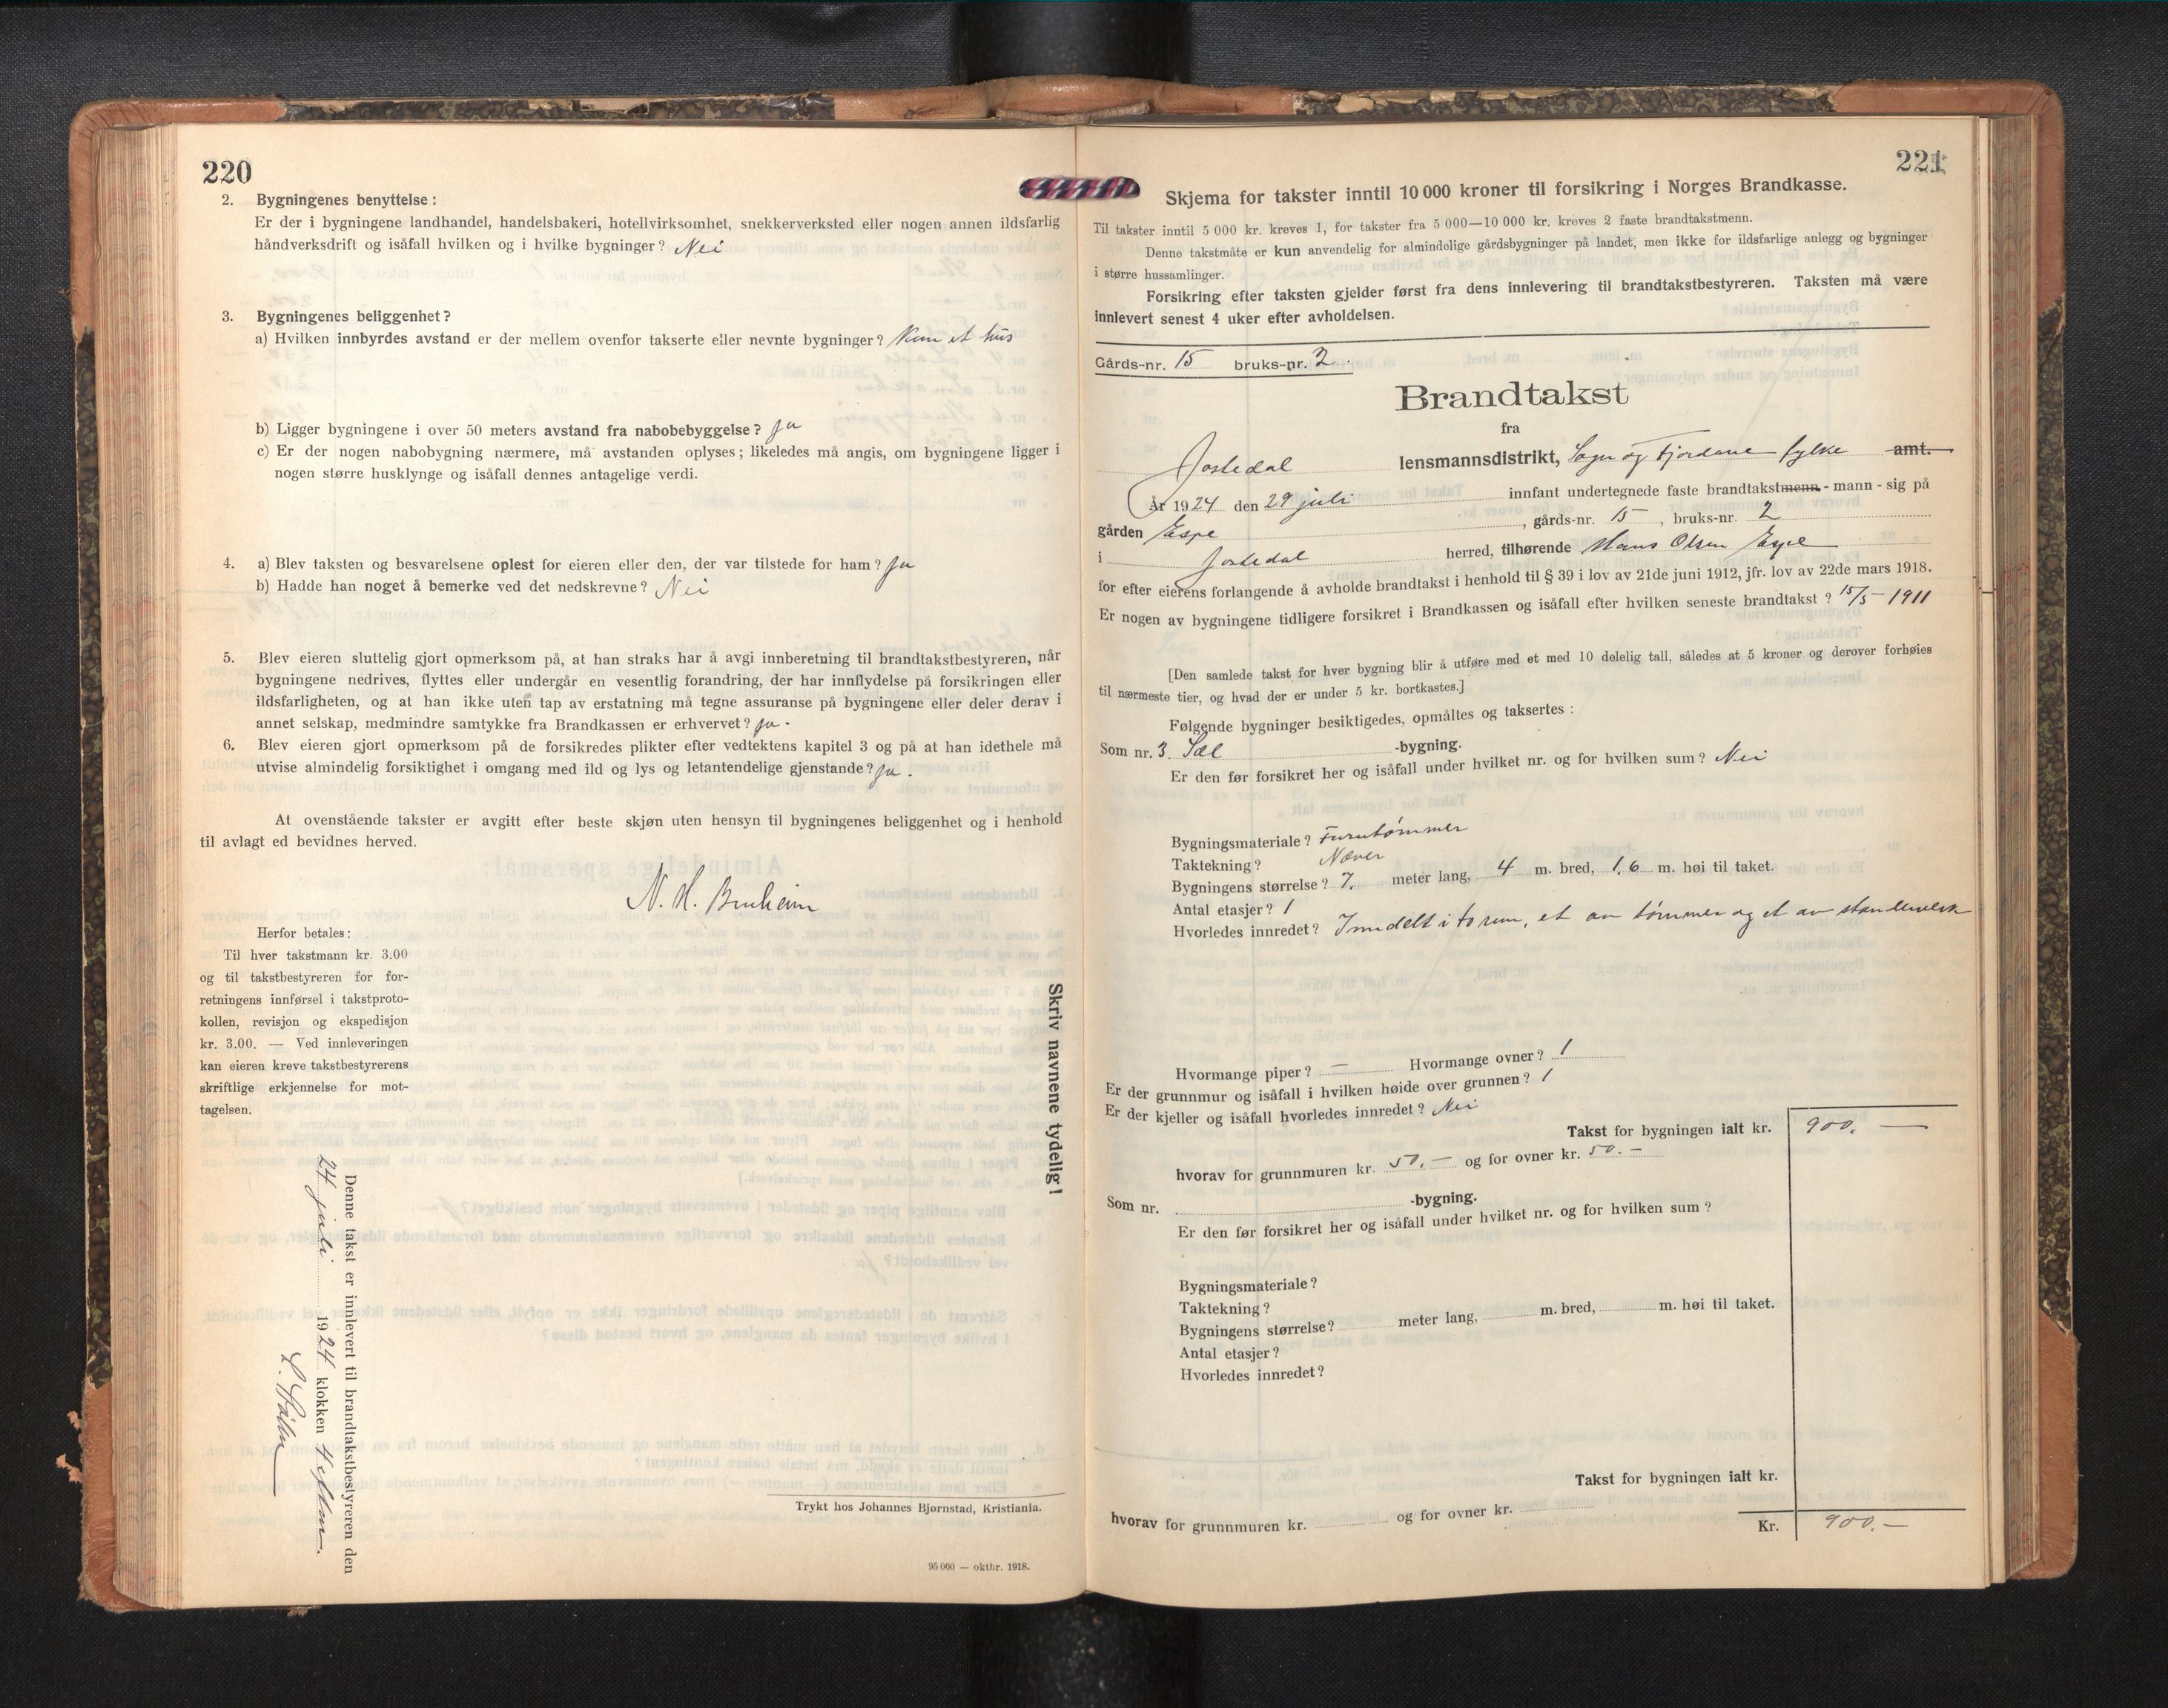 220
2. Bygningenes benyttelse :
Er der i bygningene landhandel, handelsbakeri, hotellvirksomhet, snekkerverksted eller nogen annen ildsfarlig
håndverksdrift og isåfall hvilken og i hvilke bygninger? Nei
3. Bygningenes beliggenhet?
a) Hvilken innbyrdes avstand er der mellem ovenfor takserte eller nevnte bygninger? Kun et hus
b) Ligger bygningene i over 50 meters avstand fra nabobebyggelse? ja
c) Er der nogen nabobygning nærmere, må avstanden oplyses; likeledes må angis, om bygningene ligger i
nogen større husklynge og isåfall dennes antagelige verdi.
4. a) Blev taksten og besvarelsene oplest for eieren eller den, der var tilstede for ham? ja
b) Hadde han noget å bemerke ved det nedskrevne? Nei
5. Blev eieren sluttelig gjort opmerksom på, at han straks har å avgi innberetning til brandtakstbestyreren, når
bygningene nedrives, flyttes eller undergår en vesentlig forandring, der har innflydelse på forsikringen eller
ildsfarligheten, og at han ikke uten tap av erstatning må tegne assuranse på bygningene eller deler derav i
annet selskap, medmindre samtykke fra Brandkassen er erhvervet? ja.
6. Blev eieren gjort opmerksom på de forsikredes plikter efter vedtektens kapitel 3 og på at han idethele må
utvise almindelig forsiktighet i omgang med ild og lys og letantendelige gjenstande? ja.
At ovenstående takster er avgitt efter beste skjøn uten hensyn til bygningenes beliggenhet og i henhold
til avlagt ed bevidnes herved.
N. H. Bruheim
Herfor betales:
Til hver takstmann kr. 3.00
og til takstbestyreren for for-
retningens innførsel i takstproto-
kollen, revisjon og ekspedisjon
kr. 3.00. — Ved innleveringen
kan eieren kreve takstbestyrerens
skriftlige erkjennelse for mot-
tagelsen.
Skriv navnene tydelig!
Denne takst er innlevert til brandtakstbestyreren den
24 juli 1924 klokken 4
Trykt hos Johannes Bjørnstad, Kristiania.
95 000 — oktbr. 1918.
221
Skjema for takster inntil 10 000 kroner til forsikring i Norges Brandkasse.
Til takster inntil 5 000 kr. kreves 1, for takster fra 5 000—10 000 kr. kreves 2 faste brandtakstmenn.
Denne takstmåte er kun anvendelig for almindelige gårdsbygninger på landet, men ikke for ildsfarlige anlegg og bygninger
i større hussamlinger.
Forsikring efter taksten gjelder først fra dens innlevering til brandtakstbestyreren. Taksten må være
innlevert senest 4 uker efter avholdelsen.
Gårds-nr. 15 bruks-nr. 2.
Brandtakst
fra
Jostedal lensmannsdistrikt, Sogn og Fjordane fylke amt.
År 1924 den 29 juli innfant undertegnede faste brandtakstmenn - mann - sig på
gården Espe, gårds-nr. 15, bruks-nr. 2
i Jostedal herred, tilhørende Hans Olsen Espe
for efter eierens forlangende å avholde brandtakst i henhold til § 39 i lov av 21de juni 1912, jfr. lov av 22de mars 1918.
Er nogen av bygningene tidligere forsikret i Brandkassen og isåfall efter hvilken seneste brandtakst? 15/5 1911
[Den samlede takst for hver bygning blir å utføre med et med 10 delelig tall, således at 5 kroner og derover forhøies
til nærmeste tier, og hvad der er under 5 kr. bortkastes.]
Følgende bygninger besiktigedes, opmåltes og taksertes :
Som nr. 3. Sæl -bygning.
Er den før forsikret her og isåfall under hvilket nr. og for hvilken sum? Nei
Bygningsmateriale? Furutømmer
Taktekning? Næver
Bygningens størrelse? 7. meter lang, 4 m. bred, 1.6 m. høi til taket.
Antal etasjer? 1
Hvorledes innredet? Inndelt i to rum, et av tømmer og et av stenderverk
Hvormange piper? — Hvormange ovner? 1
Er der grunnmur og isåfall i hvilken høide over grunnen? 1
Er der kjeller og isåfall hvorledes innredet? Nei
Takst for bygningen ialt kr. 900. —
hvorav for grunnmuren kr. 50.— og for ovner kr. 50.—
Som nr. -bygning.
Er den før forsikret her og isåfall under hvilket nr. og for hvilken sum?
Bygningsmateriale?
Taktekning?
Bygningens størrelse? meter lang, m. bred, m. høi til taket.
Antal etasjer?
Hvorledes innredet?
Takst for bygningen ialt kr.
hvorav for grunnmuren kr. og for ovner kr.
Kr. 900.—